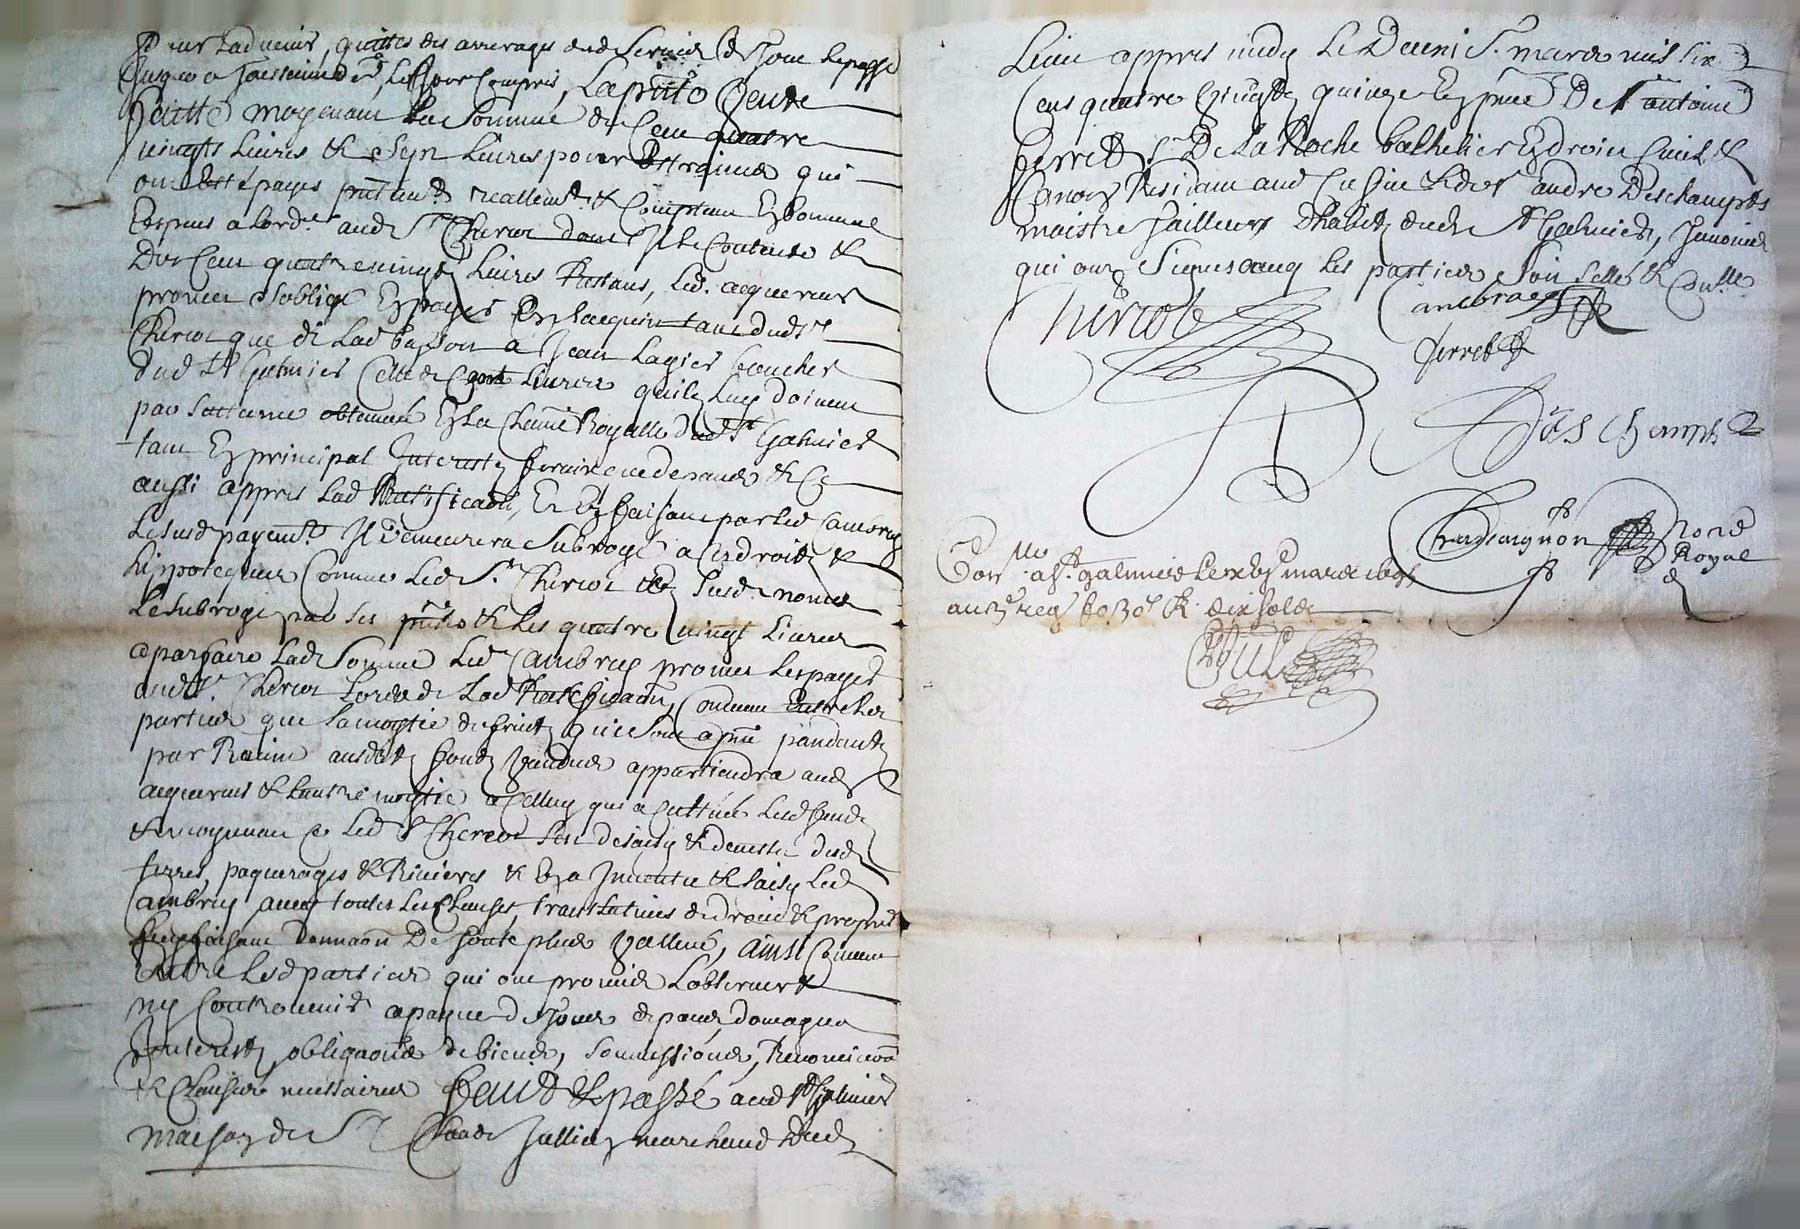 pour ladvenir, quittes des arrerages dud. Servis de Tout le passé
Jusques a Toussaint der. led. Jour Compris, La pnte Vente
faitte moyenant la Somme de Cent quatre
vingts Livres & Sept Livres pour Estraines qui
ont Esté payes reallemt. & Comptant En bonnes
Especes a lord.e aud. Sr. Cheriot dont Il se Contente &
Des Cent quatre vingt Livres Restans, Led. acquereur
promet & oblige En payer En l'acquittant dud. Sr.
Cheriot que de Lad. a Jean Lagier boucher
dud. St Galmier Celle de Cent Livres quils Luy doivent
par Sentence obtenue En La Chamre Royalle dud. St. Galmier
tant En principal Interests que despands & Ce
aussi appres Lad. Ratificaõn, Et En faisant par led. Cambray
Le susd. payemt. Il Demeurera Subrogé a Ses droits &
hippoteques Comme Led. Sr. Cheriot Esd. noms
Le Subroge par Ses pntes & Les quatre vingt Livres
a parfaire Lad. Somme Led. Cambray promet Les payer
aud. Sr. Cheriot Lors de Lad. Ratificaõn, Convenu Entre les
parties que La moytié des fruits qui sont a pnt pandants
par Racine ausdits fonds Vandus appartiendra aud.
acquereur & Lautre moytié a Celluy qui a Cultivé Lesd. fonds
& moyenant Ce Led. Sr Cheriot Sest desaisy & devestu desd.
terres, paquerages & Rivieres & En a Investu & saisy Led.
Cambray avec toutes Les Clauses translatives de droits & propriété
faisant Donnaõn De toute plus Vallue, ainsi Convenu
Entre Lesd. parties qui ont promis L'observer &
ny Contrevenir a payne de Tous despans, domages
Interests, obligaõns de biens, soumissions, Renonciaõn
& Clauses necessaires fait & passé aud. St Galmier
Maison de Sr. Claude Jullien marchand dud.
Lieu appres midy Le Dernier mars mil six
Cens quatre Vingts quinze En pnce De Sr. antoine
ferret Sr. De La Roche bachelier En droit Civil &
Canon Residant aud. Led. Sr andre Deschamps
maistre Tailleur D'habits dud. St Galmier, Tesmoins
qui ont Signes avec les parties Soit Sellé & Conllé
Cheriot
Cambray
ferret
Deschamps
Chassaignon Nore
Royal
Conllé a St. galmier Le mars 1695
au reg. fo. 30 R. dix solds